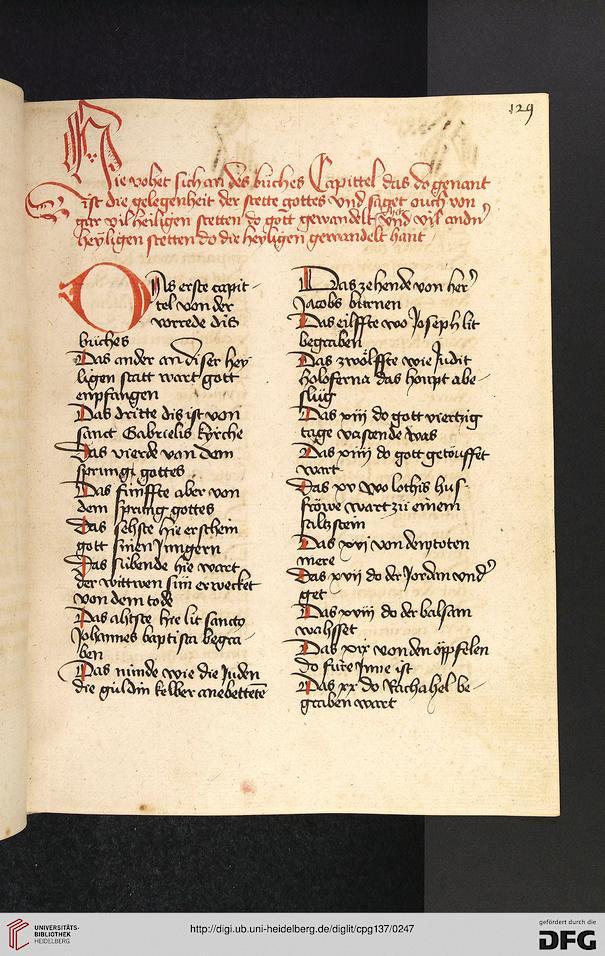 129
Hie vohet sich an des buches Capittel das do genant
ist die gelegenheit der stette gottes vnd saget ouch von
gar vil heiligen stetten do gott gewandelt het vnd vil andn
heyligen stetten do die heyligen gewandelt hant
Das erste capit-
tel von der
vorrede dis
buches
Das ander an diser hey
ligen statt wart gott
enpfangen
Das dritte dis ist von
sanct Gabrielis kyrche
Das vierde von dem
sprung gottes
Das funffte aber von
dem sprung gottes
Das sehste hie erschein
gott sinen Jungern
Das subende hie wart
der wittwen sun erwecket
von dem tode
Das ahtste hie lit sancto
Johannes baptista begra-
ben
Das nunde wie die Juden
die guldin kelber anebettete
Das zehende von her
Jacobs burnen
Das eilffte wo Joseph lit
begraben
Das zwolffte wie Judit
holoferna das houpt abe-
slug
Das xiii do gott viertzig
tage vastende was
Das xiiii do gott getouffet
wart
Das xv wo lothis hus-
fröwe wart zu einem
saltzstein
Das xvj von dem toten
mere
Das xvij do der Jordan vnd
get
Das xviij do der balsam
wahsset
Das xix von den öppfelen
do fure Inne ist
Das xx do Rachahel be-
graben wart
UNIVERSITÄTS-
BIBLIOTHEK
HEIDELBERG
http://digi.ub.uni-heidelberg.de/diglit/cpg137/0247
gefördert durch die
DFG